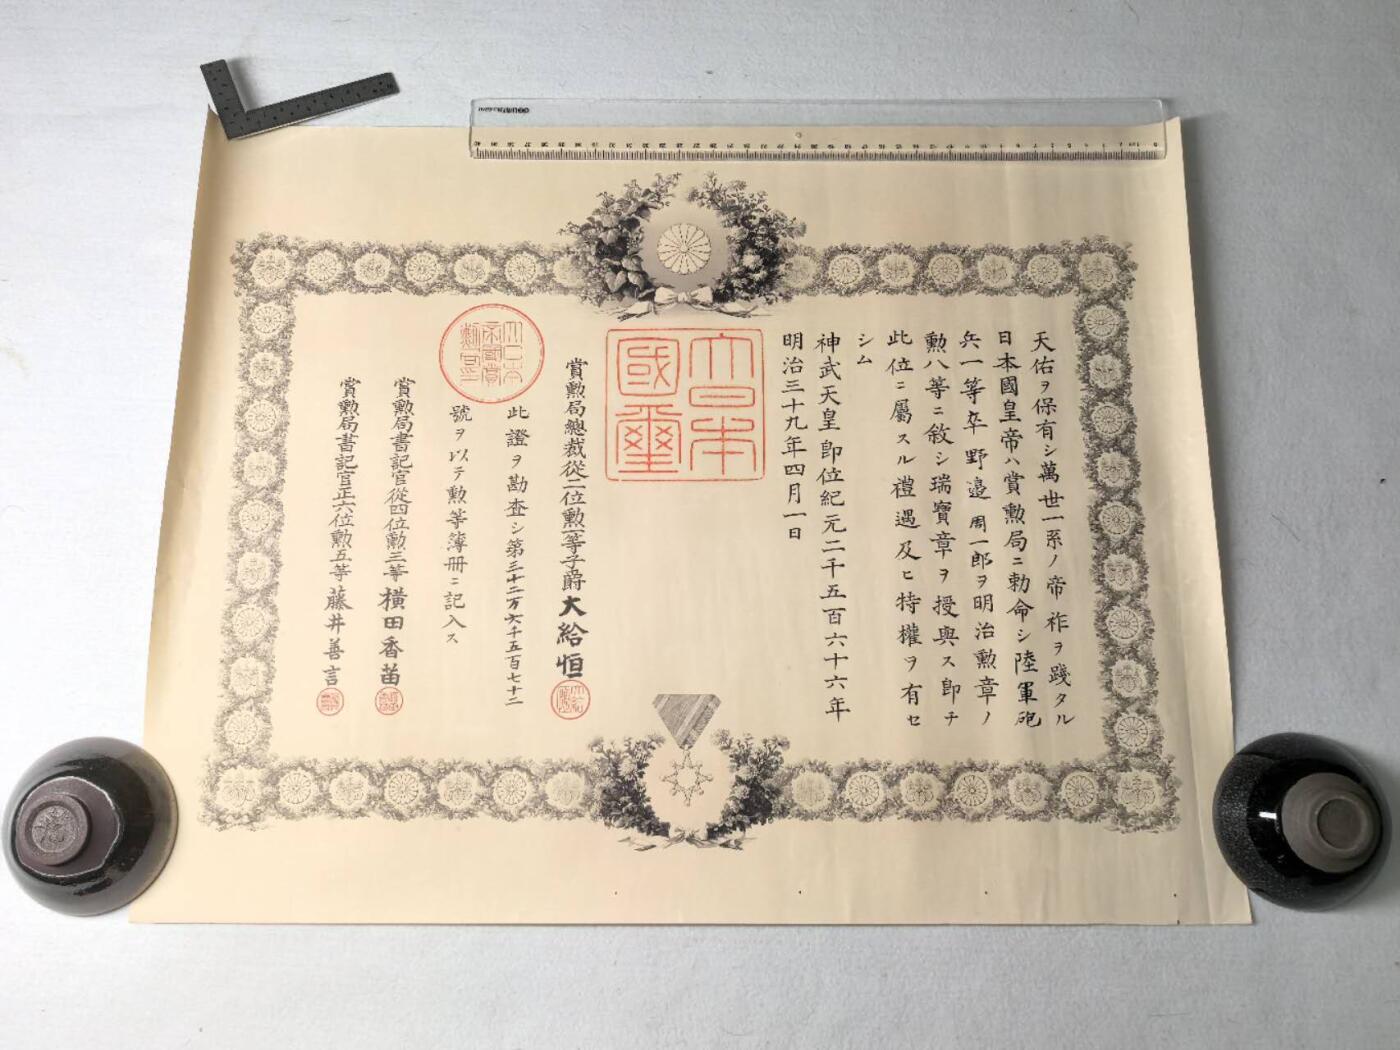 天佑ヲ保有シ萬世一系ノ帝祚ヲ踐タル
日本國皇帝ハ賞勲局ニ勅命シ陸軍砲
兵一等卒野邉周一郎ヲ明治勲章ノ
勲八等ニ敘シ瑞寶章ヲ授與ス即チ
此位ニ屬スル禮遇及ヒ特權ヲ有セ
シム
神武天皇即位紀元二千五百六十六年
明治三十九年四月一日
大日本
國璽
賞勲局總裁從二位勲一等子爵大給恒
此證ヲ勘査シ第三十二万六千五百七十二
號ヲ以テ勲等簿册ニ記入ス
大日本
帝國賞
勲局印
賞勲局書記官從四位勲三等橫田香苗
賞勲局書記官正六位勲五等藤井善言